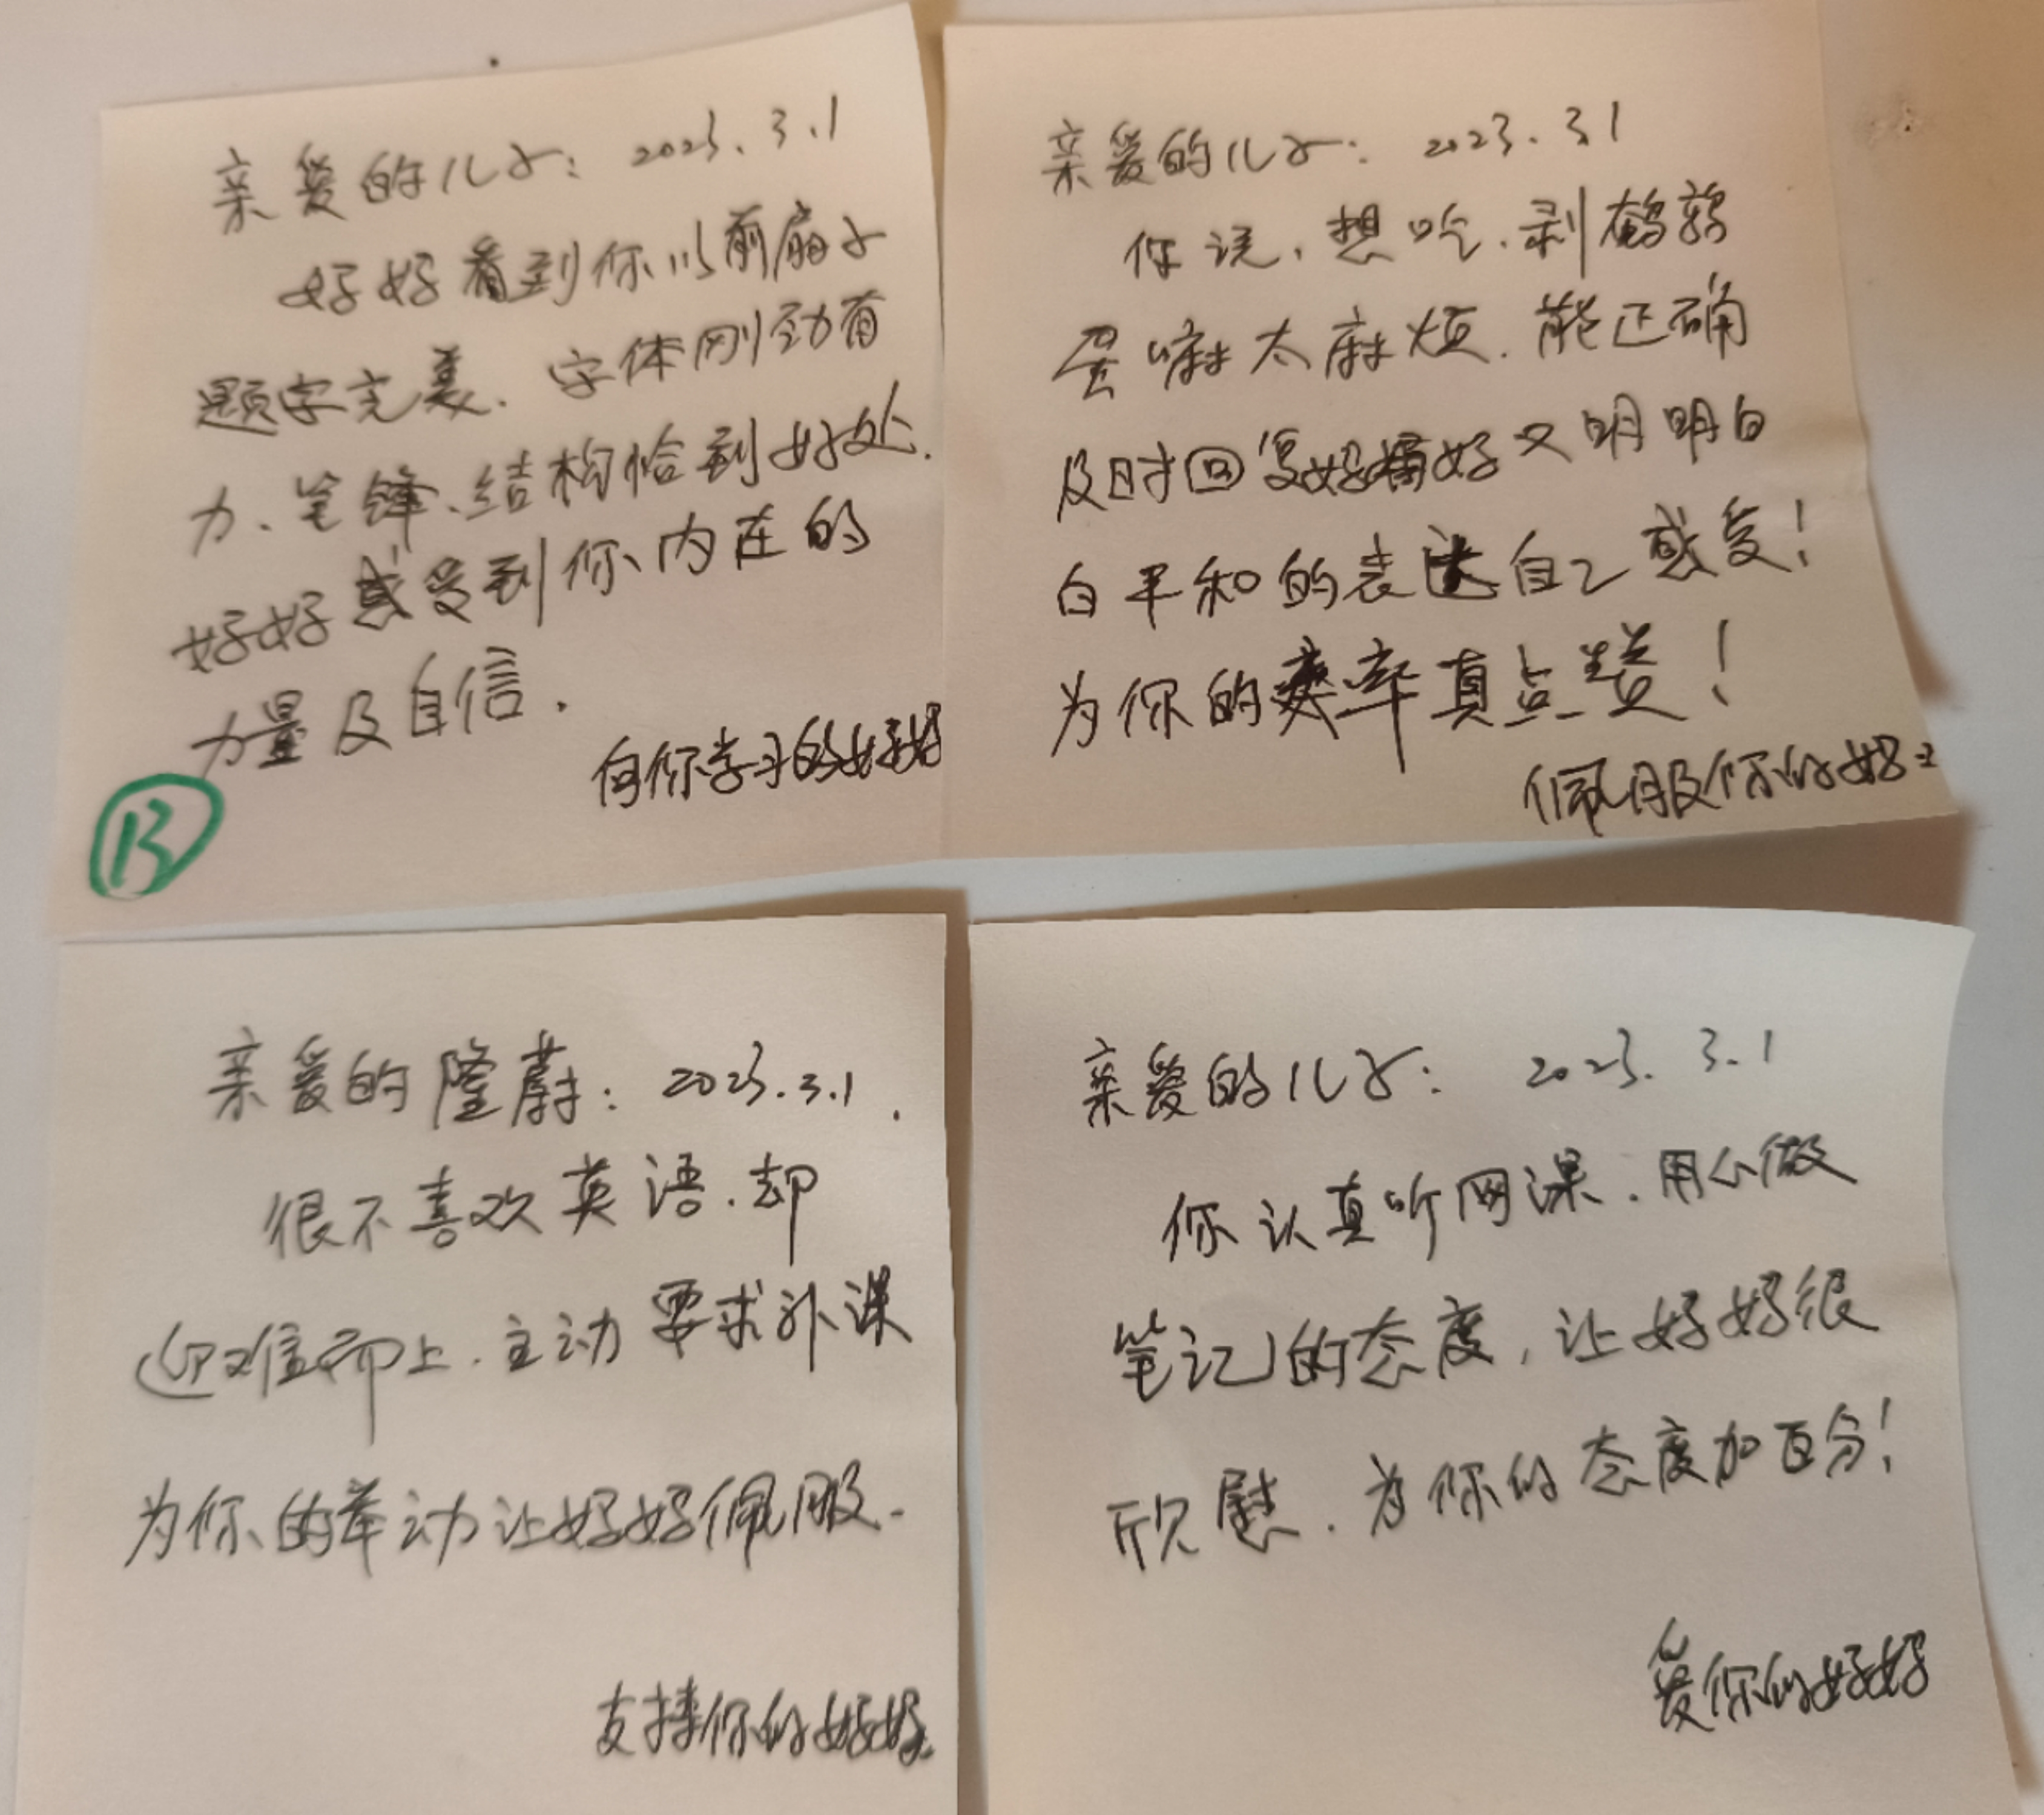 亲爱的儿子: 2023.3.1
好好看到你以前扇子
题字完美.字体刚劲有
力、笔锋、结构恰到好处.
好好感受到你内在的
力量及自信.
向你学习的好好
13
亲爱的儿子: 2023.3.1
你说、想吃、剥鹌鹑
蛋嘛太麻烦.能正确
及时回复好好又明明白
白平和的表达自己感受!
为你的率真点赞!
佩服你的好好
亲爱的隆蔚: 2023.3.1.
很不喜欢英语.却
迎难而上.主动要求补课
为你的举动让好好佩服.
支持你的好好
亲爱的儿子: 2023.3.1
你认真听网课.用心做
笔记的态度,让好好很
欣慰.为你的态度加百分!
爱你的好好